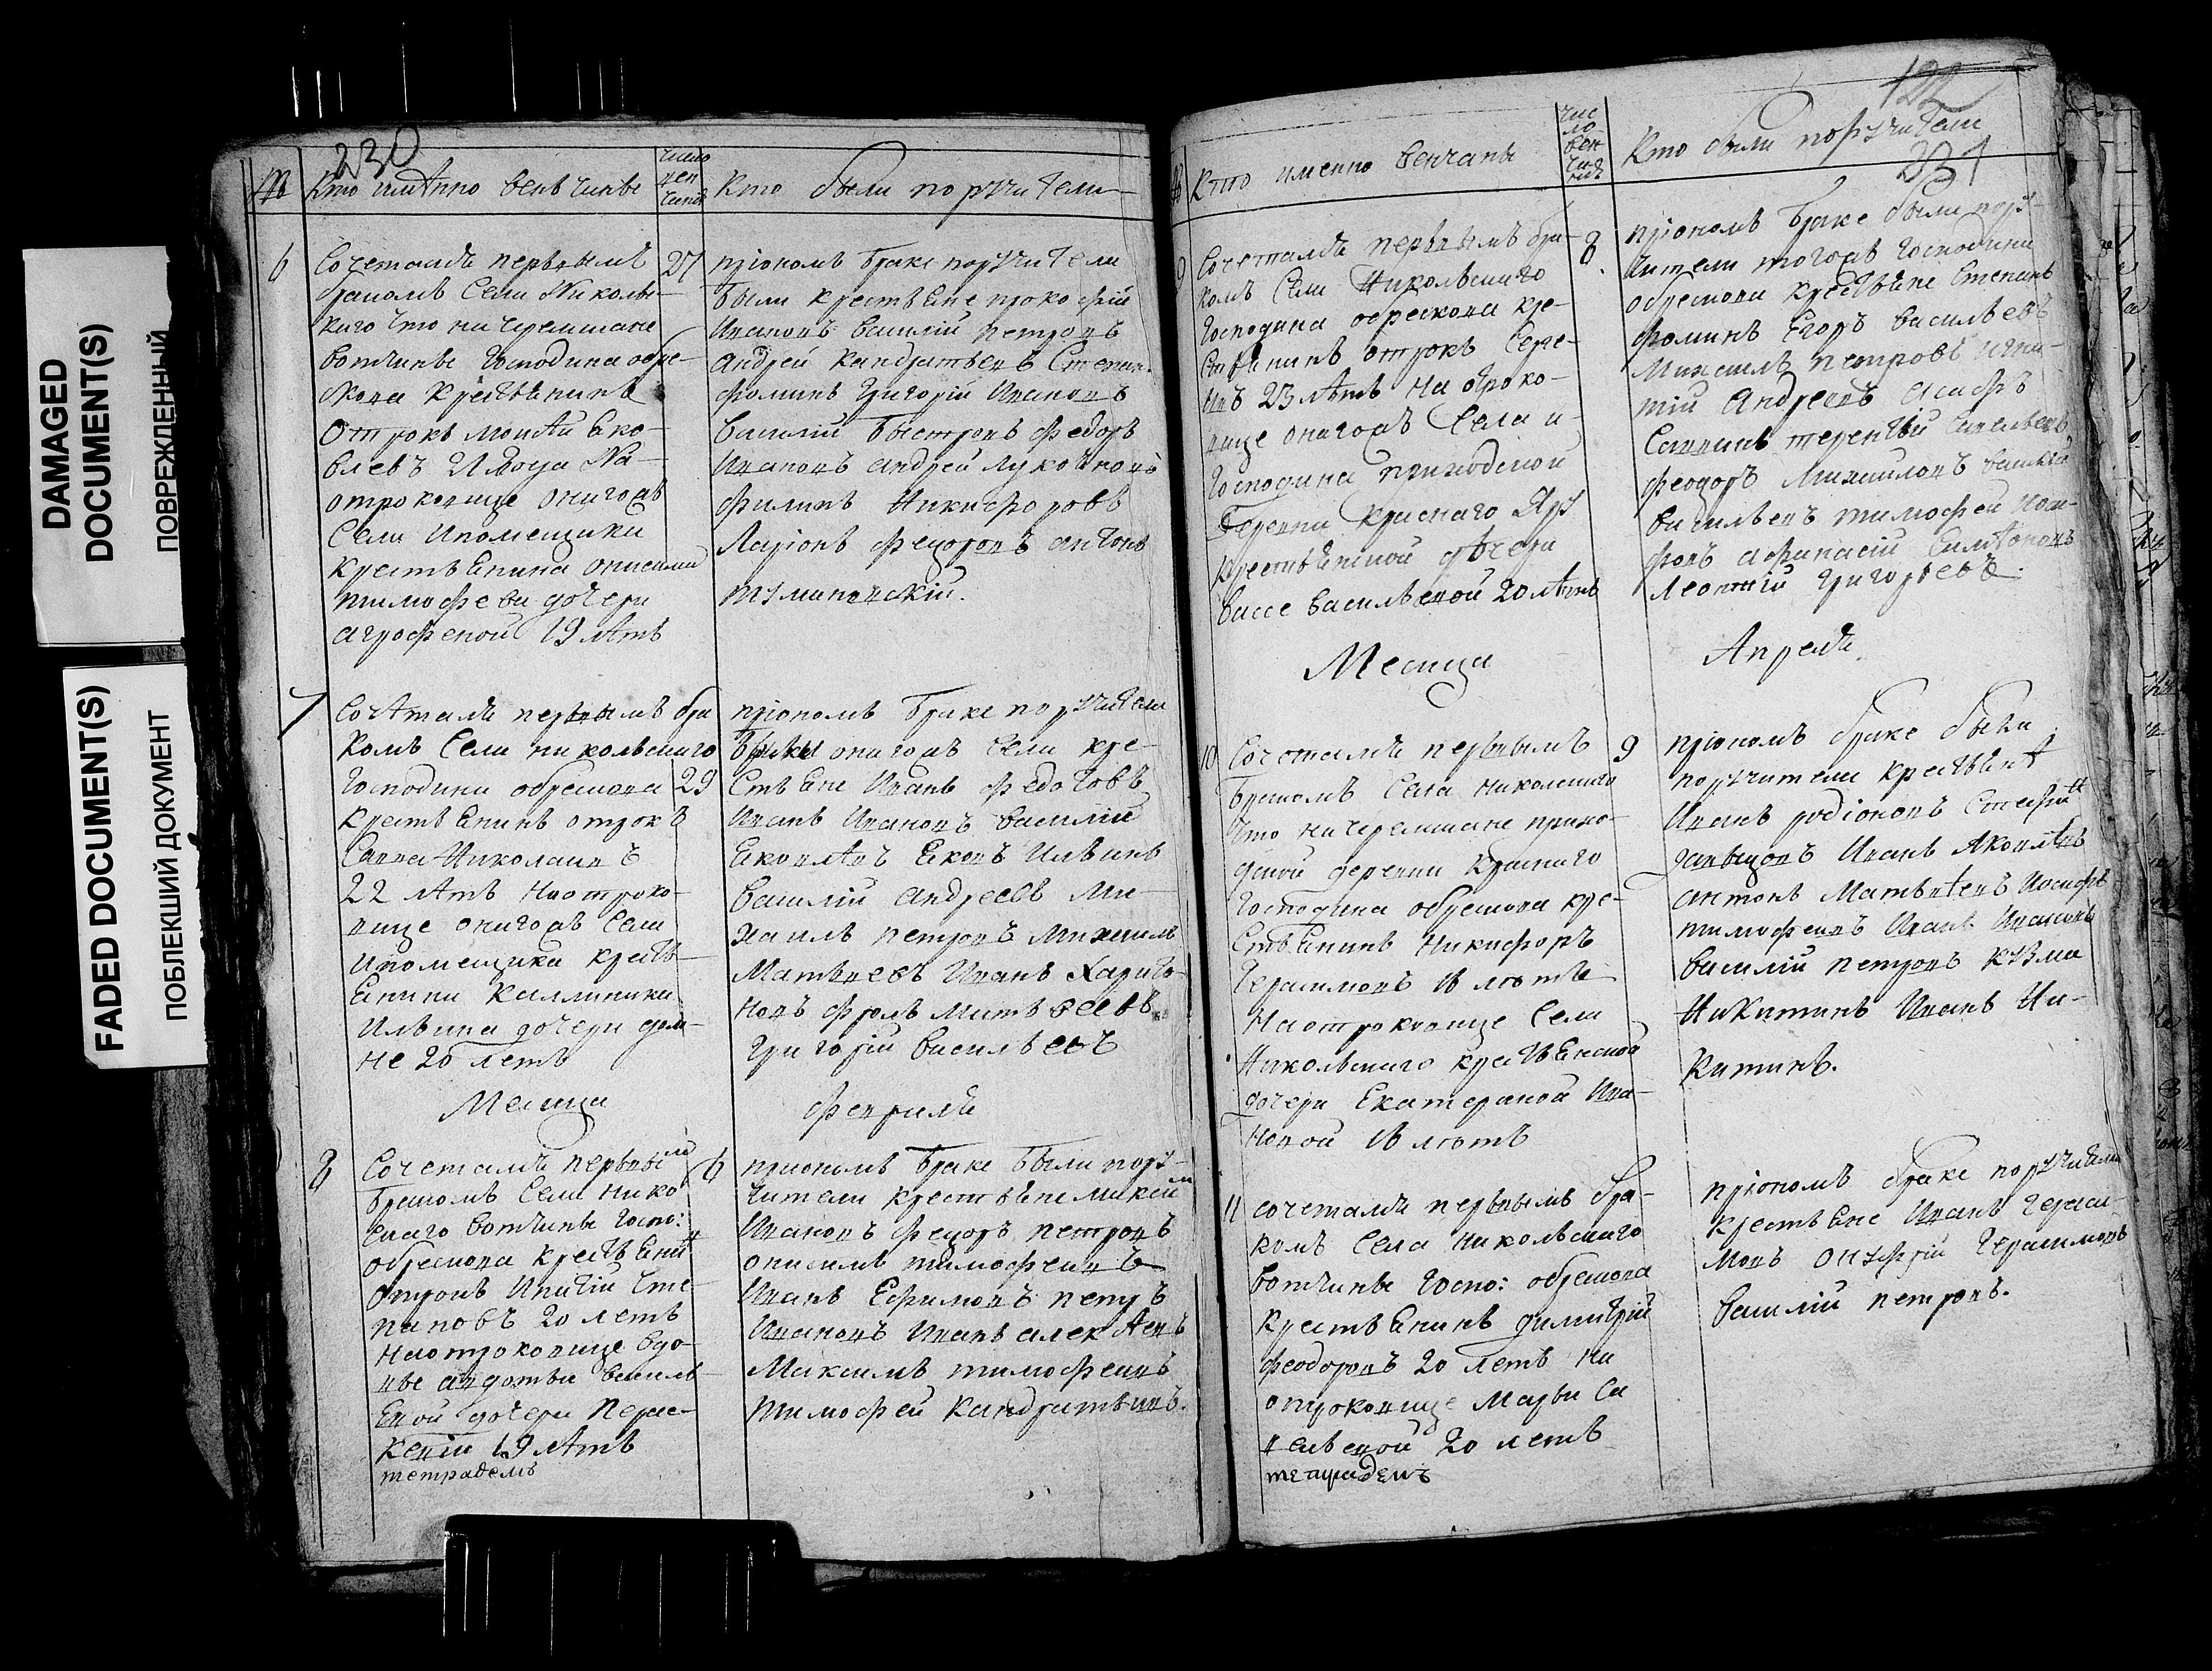 DAMAGED
DOCUMENT(S)
ПОВРЕЖДЕННЫЙ
FADED DOCUMENT(S)
ПОБЛЕКШИЙ ДОКУМЕНТ
230
№
Кто имѣнно венъчаны
число
вен
чанія
Кто были поручители
6
Сочетался первымъ
бракомъ Села Николь-
скаго что на черемшане
вотчины Господина обре-
скова крестьенинъ
отрокъ моисѣй Еко-
влевъ 21 года На
отроковице онагожъ
Села Ипомещика
крестьенина онисима
тимофева дочери
аграфеной 19 лѣтъ
27
приономъ браке поручители
были крестьене прокофій
Ивановъ василій петровъ
андрей кандратьевъ Степан
фоминъ григорій Ивановъ
василій быстровъ федоръ
Ивановъ андрей лукояновъ
филипъ Никифоровъ
Ларіонъ федоровъ антонъ
тумановскій.
7
Сочѣтался первымъ бра
комъ Села никольскаго
Господина обрескова
крестьенинъ отрокъ
Савва Николаевъ
22 лѣтъ на отроко-
вице онагожъ Села
ипомещика кресть-
енина Каллиника
Ильина дочери дом-
не 20 летъ
29
приономъ браке поручители
были онагожъ Села кре-
стьене Иванъ федотовъ
Иванъ Ивановъ василій
Екопѣвъ Ековъ Ильинъ
василій андреевъ Ми-
хаилъ петровъ михаилъ
Матвеевъ Иванъ Харито-
новъ фролъ матвеевъ
григорій васильевъ
Месяца
февраля
8
Сочетался первымъ
бракомъ Села Нико
скаго вотчины госпо:
обрескова крестьенин
отрокъ Игнатій Сте-
пановъ 20 летъ
на отроковице вдо-
вы авдотьи василь-
евой дочери Парас-
кевіи 19 лѣтъ
тетрадемъ
6
приономъ браке были пору-
чители крестьене максим
Ивановъ федоръ петровъ
онисимъ тимофеевъ
Иванъ Ефимовъ петръ
Ивановъ Иванъ алексѣевъ
Максимъ тимофеевъ
тимофей кандратьевъ.
122
231
№
Кто именно венчаны
чис
ло
вен
чанія
Кто были поручители
9
Сочетался первымъ бра-
комъ Села Никольскаго
господина обрескова кре-
стьенинъ отрокъ
23 лѣтъ на отроко-
вице онагожъ Села и
Господина приходской
деревни краснаго Яру
крестьенской дочери
вассе васильевой 20 лѣтъ
8.
приономъ браке были пору-
чители тогожъ господина
обрескова крестьене Степанъ
фоминъ Егоръ васильевъ
Михаилъ петровъ игна-
тій андреевъ
Савинъ терентій савельевъ
феодоръ Михайловъ василій
васильевъ тимофей
афанасій Симѣоновъ
леонтій григорьевъ.
Месяца
Апреля
10
Сочетался первымъ
бракомъ Села Никольскаго
что на черемшане прихо-
дской деревни краснаго
господина обрескова кре-
стьенинъ Никифоръ
Герасимовъ 18 летъ
на отроковице Села
Никольскаго крестьенской
дочери Екатериной Ива-
новой 18 летъ
9
приономъ браке были
поручители крестьенѣ
Иванъ родіоновъ
Иванъ Яковлѣвъ
антонъ Матвѣевъ Иосифъ
тимофеевъ Иванъ Ивановъ
василій петровъ кузма
Никитинъ Иванъ Ни-
китинъ.
11
сочетался первымъ бра-
комъ Села Никольскаго
вотчины госпо: обрескова
крестьенинъ димитрій
феодоровъ 20 летъ на
отроковице Марьи Са
вельевой 20 летъ
тетрадемъ
приономъ браке поручители
крестьене Иванъ Гераси-
мовъ онуфрій Герасимовъ
василій петровъ.